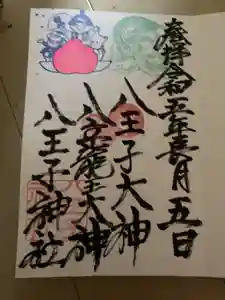 奉拝令和五年長月五日
八王子大神
八大龍王大神
八王子神社